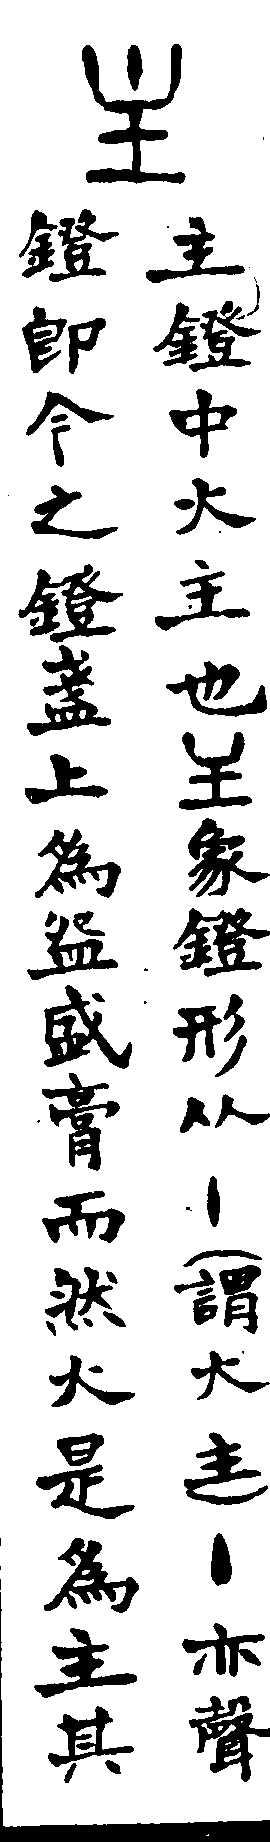 主
主鐙中火主也王象鐙形从丨(謂火主)丨亦聲
鐙即今之鐙盞上為盌盛膏而然火是為主其